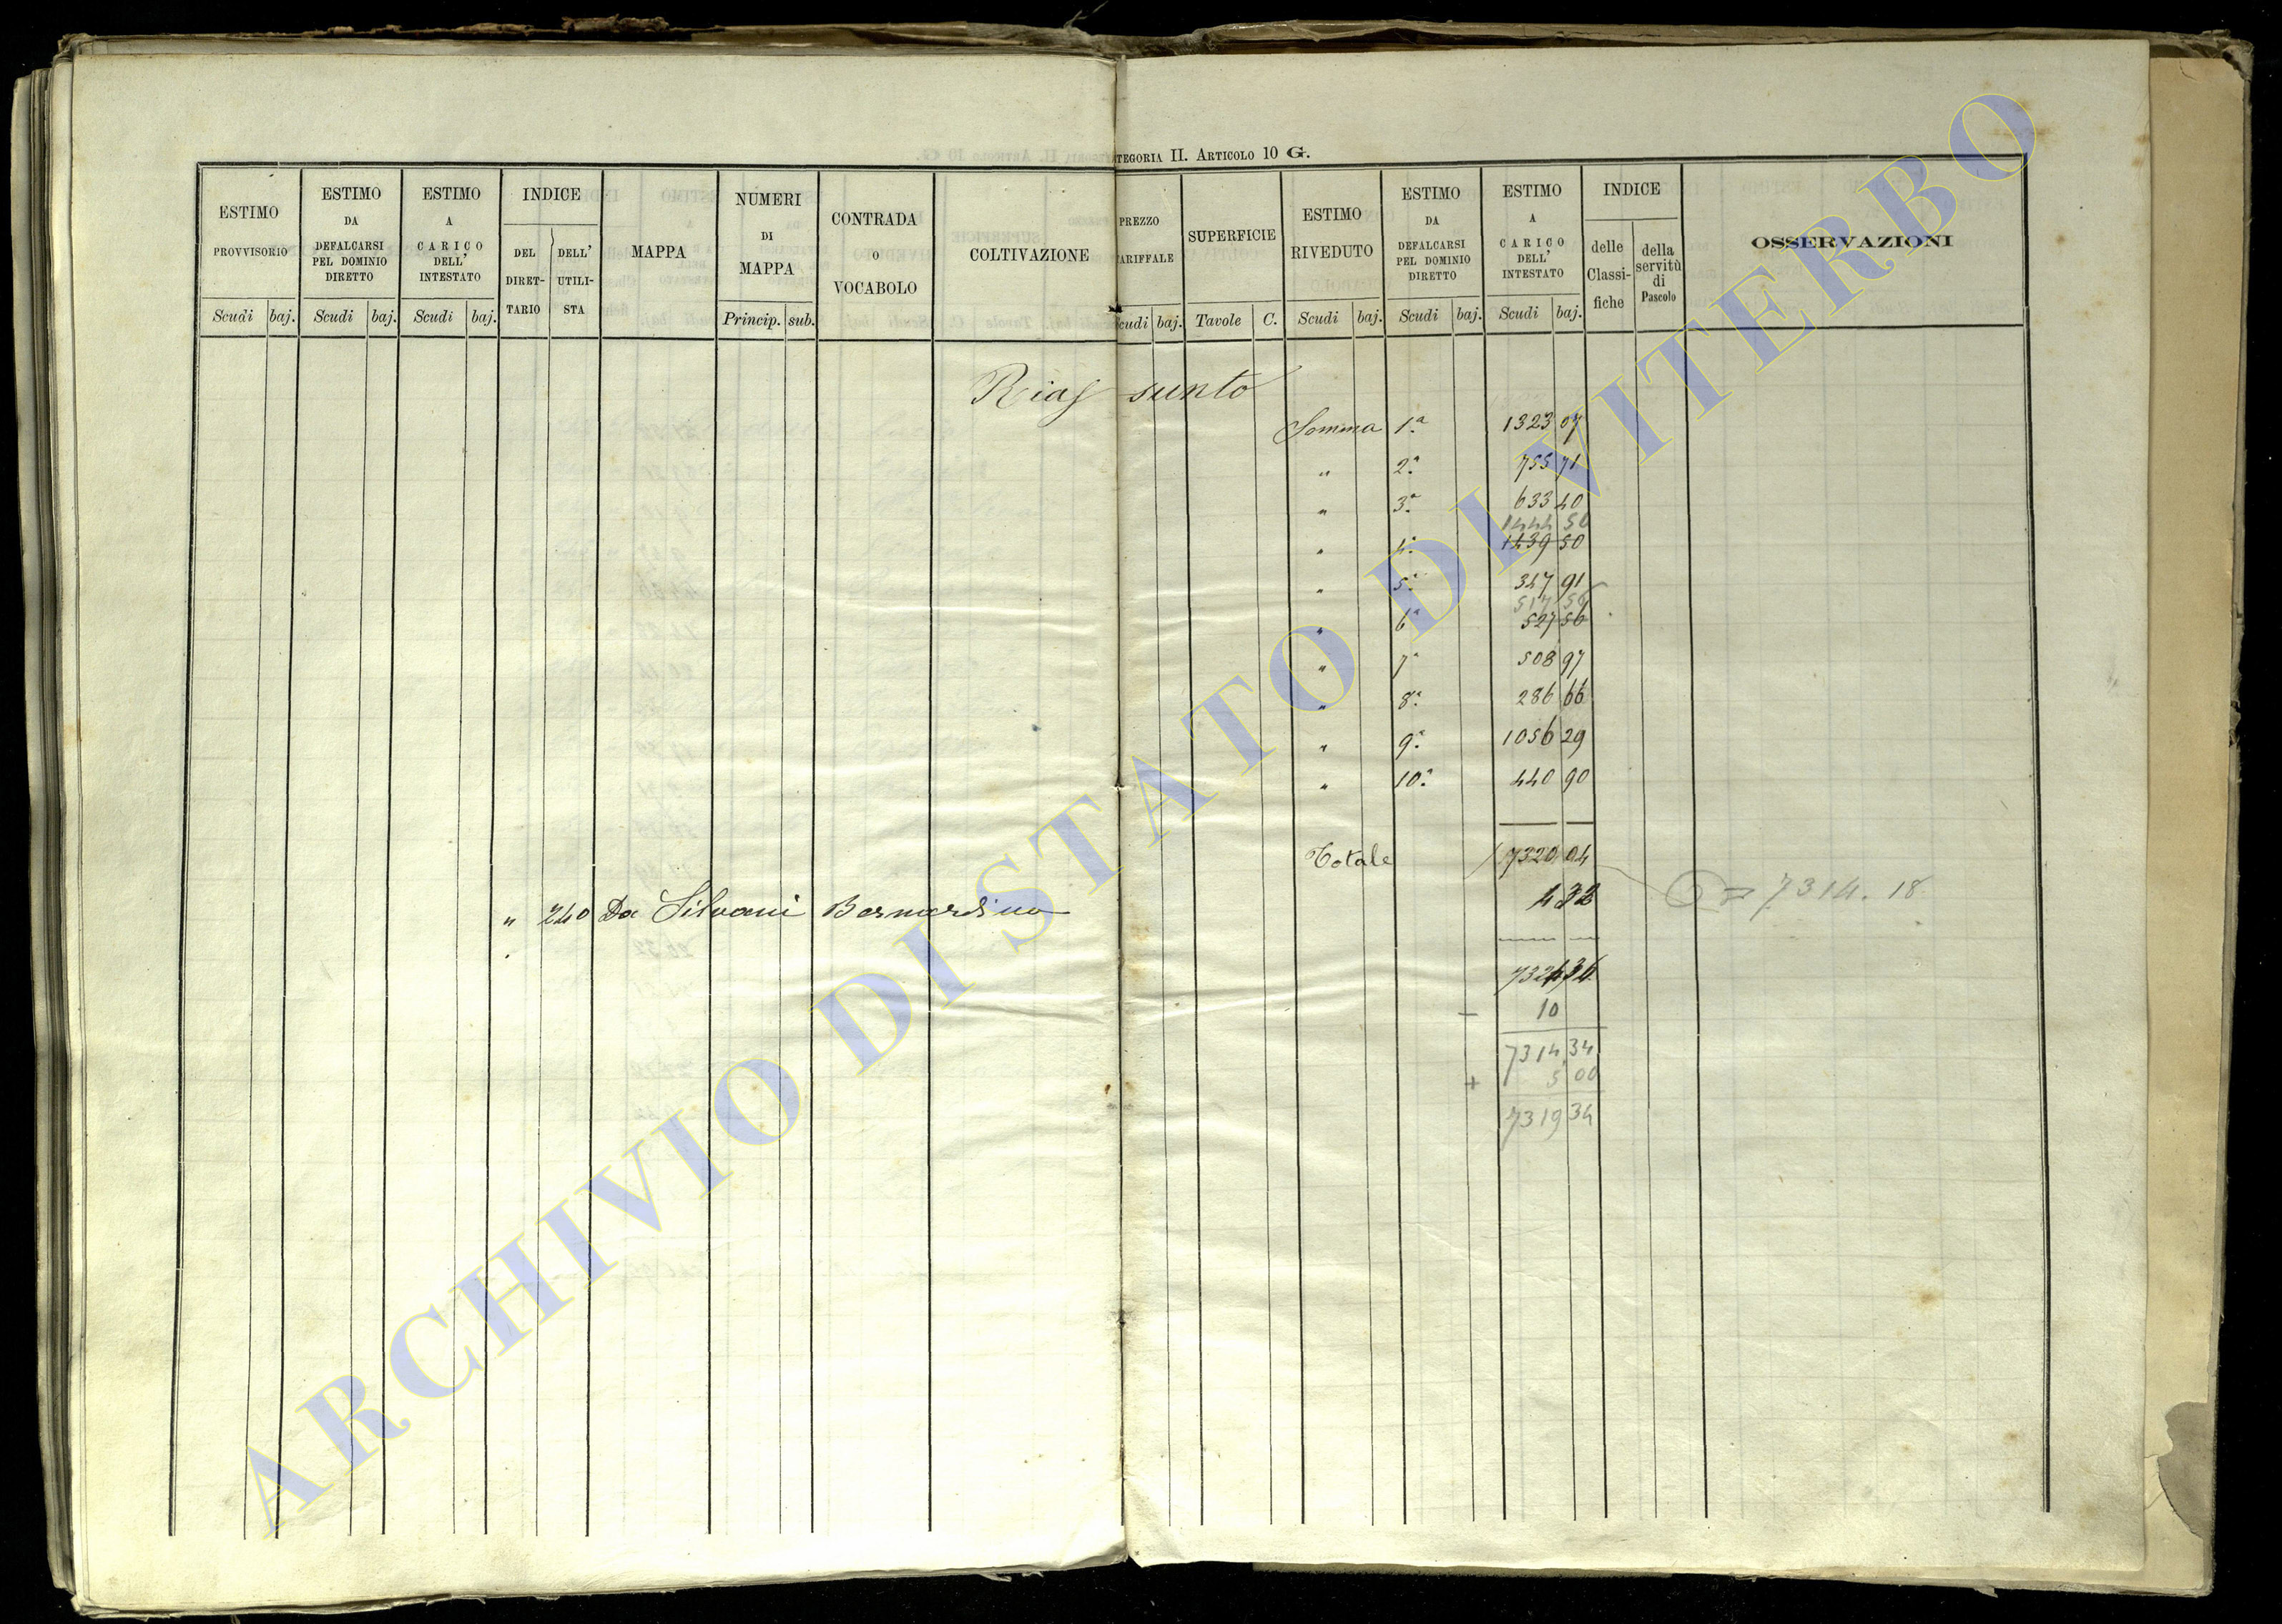 TEGORIA II. ARTICOLO 10 G.
ESTIMO PROVVISORIO
Scudi baj.
ESTIMO DA DEFALCARSI PEL DOMINIO DIRETTO
Scudi baj.
ESTIMO A CARICO DELL' INTESTATO
Scudi baj.
INDICE
DEL DIRET-TARIO
DELL' UTILI-STA
MAPPA
NUMERI DI MAPPA
Princip. sub.
CONTRADA O VOCABOLO
COLTIVAZIONE
PREZZO TARIFFALE
cudi baj.
SUPERFICIE
Tavole C.
ESTIMO RIVEDUTO
Scudi baj.
ESTIMO DA DEFALCARSI PEL DOMINIO DIRETTO
Scudi baj.
ESTIMO A CARICO DELL' INTESTATO
Scudi baj.
INDICE
delle Classi-fiche
della servitù di Pascolo
OSSERVAZIONI
Riassunto
Somma 1ª 1323 07
" 2ª 755 71
" 3ª 633 40
1444 50
" 4ª 1439 50
" 5ª 347 91
517 56
" 6ª 527 56
" 7ª 508 97
" 8ª 286 66
" 9ª 1056 29
" 10ª 440 90
Totale 7320 04
= 7314. 18
" 240 Da Silvani Bernardino 4 32
7324 36
- 10
7314 34
+ 5 00
7319 34
ARCHIVIO DI STATO DI VITERBO